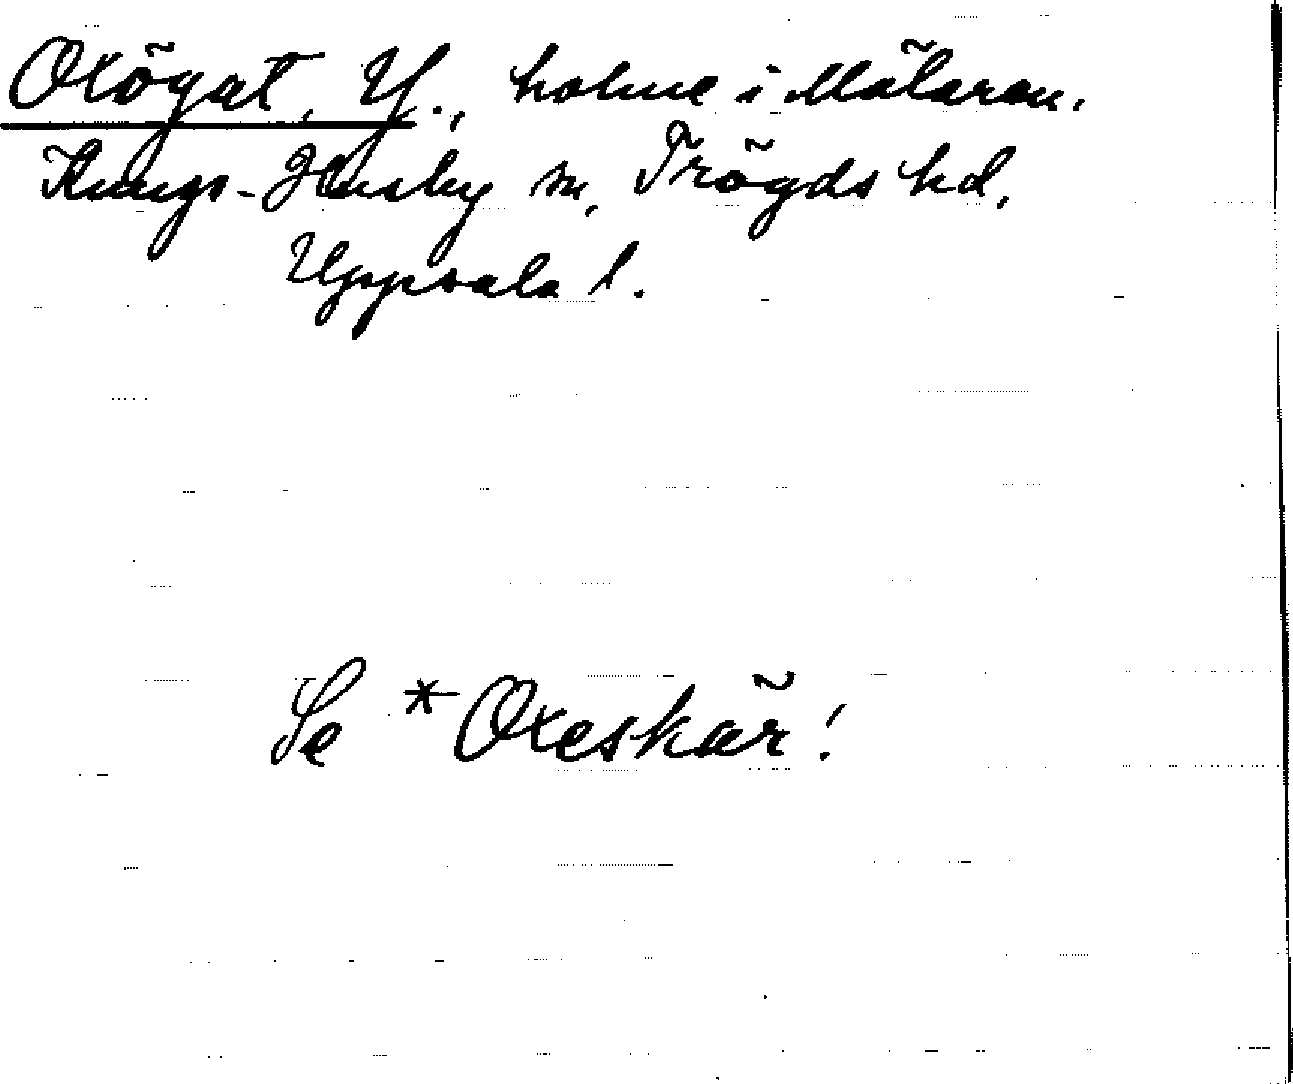 Oxögat, Y., holme i Mälaren.
Kungs-Husby sn, Trögds hd,
Uppsala l.
Se *Oxeskär!